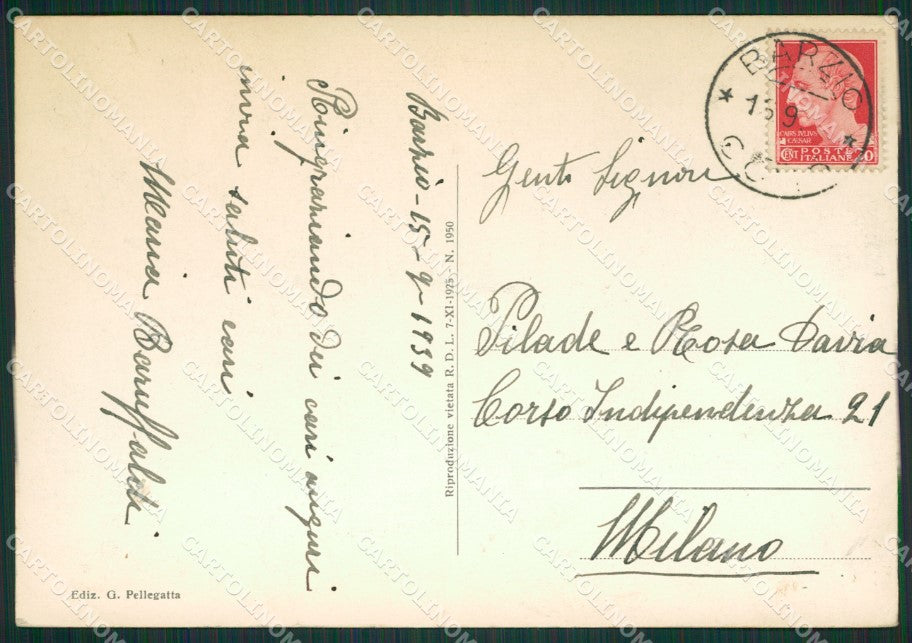 Barzio - 15-9-1939
Ringraziando dei cari auguri
invia saluti cari
Maria Baruffaldi
Ediz. G. Pellegatta
Riproduzione vietata R. D. L. 7-XI-1925 - N. 1950
BARZIO
15 9
CAIVS IVLIVS
CAESAR
CENT POSTE 20
ITALIANE
Gent. Signori
Pilade e Rosa Davia
Corso Indipendenza 21
Milano
CARTOLINOMANIA